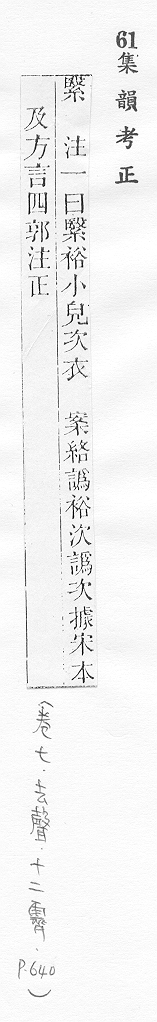 61集韻考正
繄　注一曰繄裕小兒次衣　案袼譌裕㳄譌次據宋本
及方言四郭注正
(卷七·去聲·十二霽·P.640)